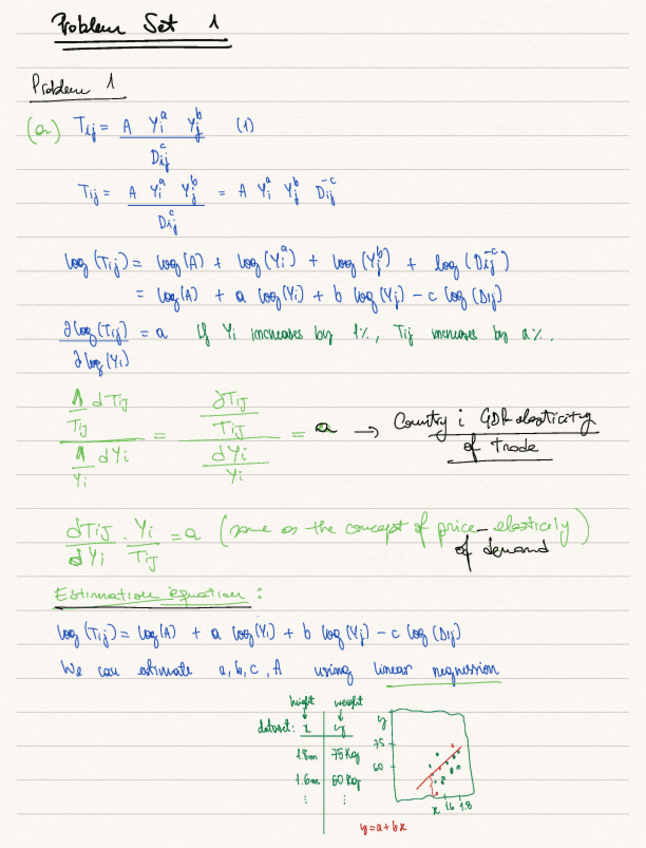 Problem Set 1
Problem 1
(a) Tij = A Yi^a Yj^b / Dij^c (1)
Tij = A Yi^a Yj^b / Dij^c = A Yi^a Yj^b Dij^-c
log(Tij) = log(A) + log(Yi^a) + log(Yj^b) + log(Dij^-c)
= log(A) + a log(Yi) + b log(Yj) - c log(Dij)
∂log(Tij) / ∂log(Yi) = a If Yi increases by 1%, Tij increases by a%.
(1/Tij dTij) / (1/Yi dYi) = (∂Tij/Tij) / (dYi/Yi) = a → Country i GDP elasticity of trade
dTij/dYi · Yi/Tij = a (same as the concept of price-elasticity of demand)
Estimation equation:
log(Tij) = log(A) + a log(Yi) + b log(Yj) - c log(Dij)
We can estimate a, b, c, A using linear regression
height weight
dataset: x y
1.8m 75Kg
1.6m 60Kg
⋮ ⋮
y
75
60
x 1.6 1.8
y=a+bx